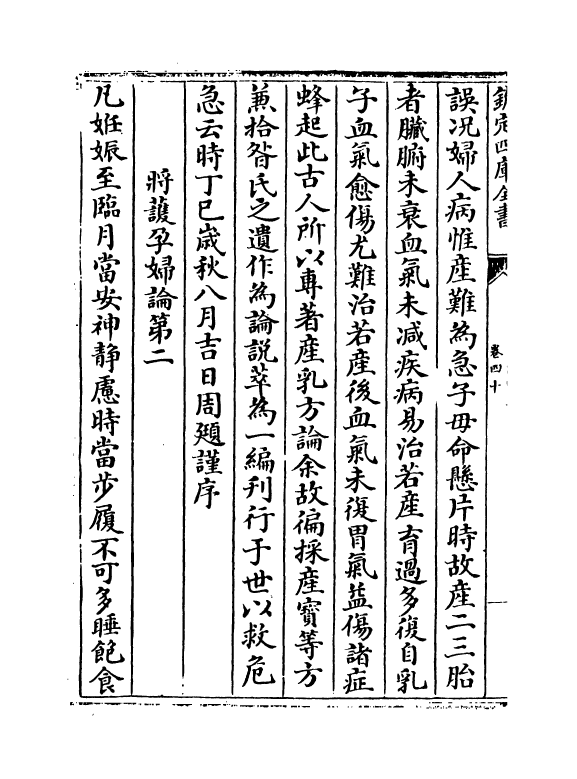 欽定四庫全書
卷四十
誤况婦人病惟産難為急子母命懸片時故産二三胎
者臟腑未衰血氣未減疾病易治若産育過多復自乳
子血氣愈傷尤難治若産後血氣未復胃氣益傷諸症
蜂起此古人所以專著産乳方論余故徧採産寳等方
兼拾昝氏之遺作為論説萃為一編刋行于世以救危
急云時丁巳嵗秋八月吉日周頲謹序
將䕶孕婦論第二
凡姙娠至臨月當安神靜慮時當步履不可多睡飽食